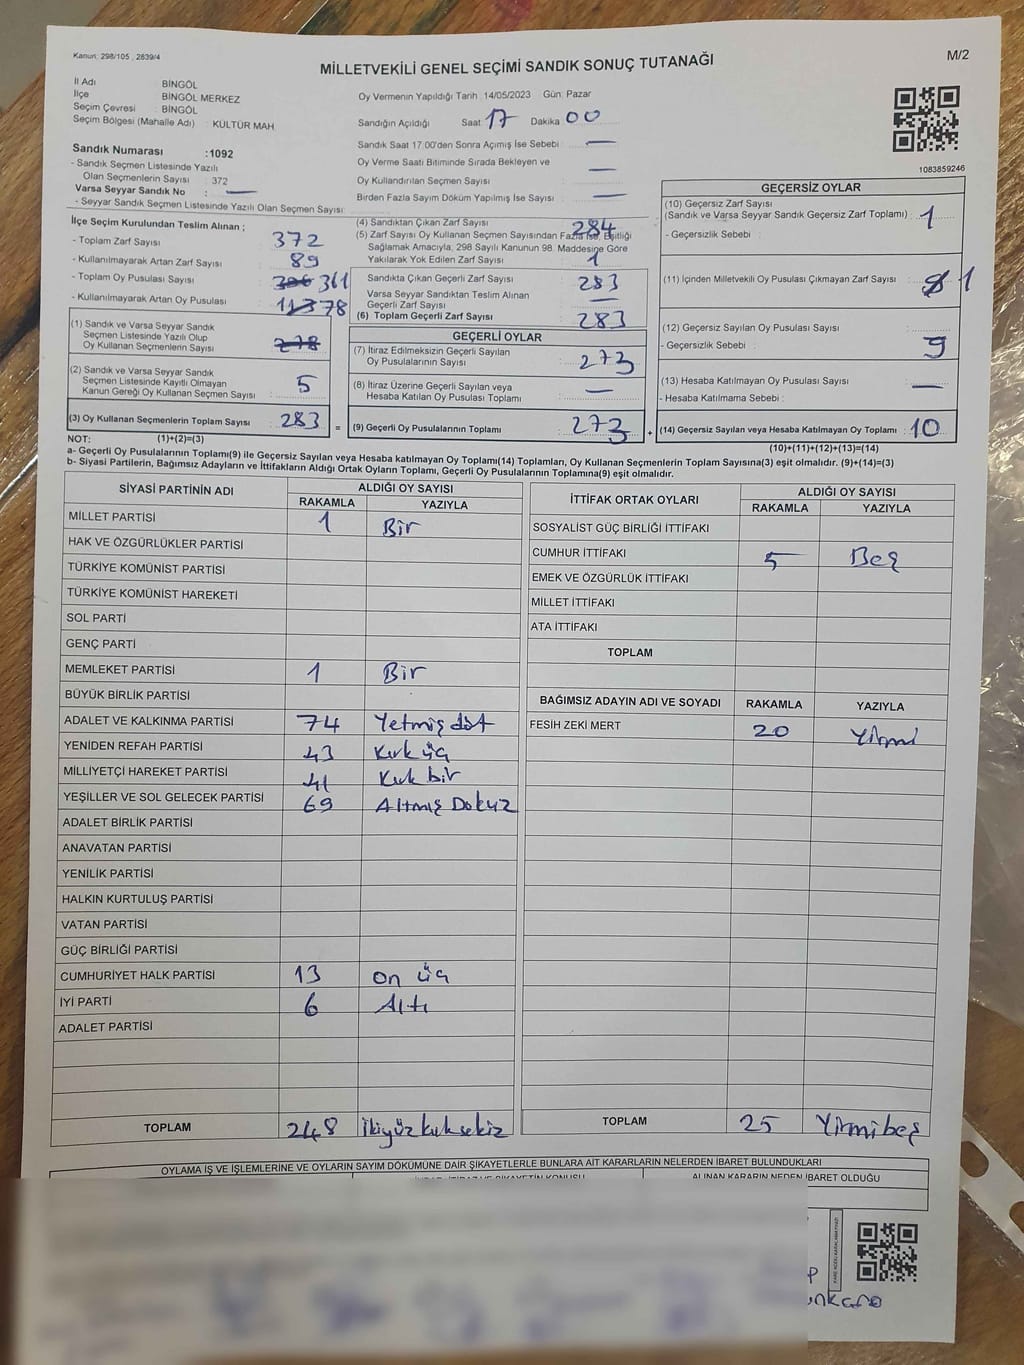 Kanun: 298/105 , 2839/4
M/2
MİLLETVEKİLİ GENEL SEÇİMİ SANDIK SONUÇ TUTANAĞI
İl Adı BİNGÖL
İlçe BİNGÖL MERKEZ
Seçim Çevresi : BİNGÖL
Seçim Bölgesi (Mahalle Adı) : KÜLTÜR MAH
Sandık Numarası :1092
- Sandık Seçmen Listesinde Yazılı
Olan Seçmenlerin Sayısı : 372
Varsa Seyyar Sandık No : —
- Seyyar Sandık Seçmen Listesinde Yazılı Olan Seçmen Sayısı:
Oy Vermenin Yapıldığı Tarih :14/05/2023 Gün: Pazar
Sandığın Açıldığı Saat 17 Dakika 00
Sandık Saat 17.00'den Sonra Açımış İse Sebebi : —
Oy Verme Saati Bitiminde Sırada Bekleyen ve
Oy Kullandırılan Seçmen Sayısı : —
Birden Fazla Sayım Döküm Yapılmış İse Sayısı : —
1083859246
İlçe Seçim Kurulundan Teslim Alınan ;
- Toplam Zarf Sayısı : 372
- Kullanılmayarak Artan Zarf Sayısı : 89
- Toplam Oy Pusulası Sayısı : 361
- Kullanılmayarak Artan Oy Pusulası : 78
(1) Sandık ve Varsa Seyyar Sandık
Seçmen Listesinde Yazılı Olup
Oy Kullanan Seçmenlerin Sayısı : 278
(2) Sandık ve Varsa Seyyar Sandık
Seçmen Listesinde Kayıtlı Olmayan
Kanun Gereği Oy Kullanan Seçmen Sayısı : 5
(3) Oy Kullanan Seçmenlerin Toplam Sayısı : 283 =
(4) Sandıktan Çıkan Zarf Sayısı : 284
(5) Zarf Sayısı Oy Kullanan Seçmen Sayısından Fazla İse, Eşitliği
Sağlamak Amacıyla, 298 Sayılı Kanunun 98. Maddesine Göre
Yakılarak Yok Edilen Zarf Sayısı : 1
Sandıkta Çıkan Geçerli Zarf Sayısı : 283
Varsa Seyyar Sandıktan Teslim Alınan
Geçerli Zarf Sayısı : —
(6) Toplam Geçerli Zarf Sayısı : 283
GEÇERLİ OYLAR
(7) İtiraz Edilmeksizin Geçerli Sayılan
Oy Pusulalarının Sayısı : 273
(8) İtiraz Üzerine Geçerli Sayılan veya
Hesaba Katılan Oy Pusulası Toplamı : —
(9) Geçerli Oy Pusulalarının Toplamı : 273 +
GEÇERSİZ OYLAR
(10) Geçersiz Zarf Sayısı
(Sandık ve Varsa Seyyar Sandık Geçersiz Zarf Toplamı) : 1
- Geçersizlik Sebebi :
(11) İçinden Milletvekili Oy Pusulası Çıkmayan Zarf Sayısı : 1
(12) Geçersiz Sayılan Oy Pusulası Sayısı :
- Geçersizlik Sebebi : 9
(13) Hesaba Katılmayan Oy Pusulası Sayısı : —
- Hesaba Katılmama Sebebi :
(14) Geçersiz Sayılan veya Hesaba Katılmayan Oy Toplamı : 10
NOT: (1)+(2)=(3)
(10)+(11)+(12)+(13)=(14)
a- Geçerli Oy Pusulalarının Toplamı(9) ile Geçersiz Sayılan veya Hesaba katılmayan Oy Toplamı(14) Toplamları, Oy Kullanan Seçmenlerin Toplam Sayısına(3) eşit olmalıdır. (9)+(14)=(3)
b- Siyasi Partilerin, Bağımsız Adayların ve İttifakların Aldığı Ortak Oyların Toplamı, Geçerli Oy Pusulalarının Toplamına(9) eşit olmalıdır.
SİYASİ PARTİNİN ADI ALDIĞI OY SAYISI
RAKAMLA YAZIYLA
MİLLET PARTİSİ 1 Bir
HAK VE ÖZGÜRLÜKLER PARTİSİ
TÜRKİYE KOMÜNİST PARTİSİ
TÜRKİYE KOMÜNİST HAREKETİ
SOL PARTİ
GENÇ PARTİ
MEMLEKET PARTİSİ 1 Bir
BÜYÜK BİRLİK PARTİSİ
ADALET VE KALKINMA PARTİSİ 74 Yetmiş döt
YENİDEN REFAH PARTİSİ 43 Kırk üç
MİLLİYETÇİ HAREKET PARTİSİ 41 Kırk bir
YEŞİLLER VE SOL GELECEK PARTİSİ 69 Altmış Dokuz
ADALET BİRLİK PARTİSİ
ANAVATAN PARTİSİ
YENİLİK PARTİSİ
HALKIN KURTULUŞ PARTİSİ
VATAN PARTİSİ
GÜÇ BİRLİĞİ PARTİSİ
CUMHURİYET HALK PARTİSİ 13 on üç
İYİ PARTİ 6 Altı
ADALET PARTİSİ
TOPLAM 248 ikiyüzkırksekiz
İTTİFAK ORTAK OYLARI ALDIĞI OY SAYISI
RAKAMLA YAZIYLA
SOSYALİST GÜÇ BİRLİĞİ İTTİFAKI
CUMHUR İTTİFAKI 5 Beş
EMEK VE ÖZGÜRLÜK İTTİFAKI
MİLLET İTTİFAKI
ATA İTTİFAKI
TOPLAM
BAĞIMSIZ ADAYIN ADI VE SOYADI RAKAMLA YAZIYLA
FESİH ZEKİ MERT 20 Yirmi
TOPLAM 25 Yirmibeş
OYLAMA İŞ VE İŞLEMLERİNE VE OYLARIN SAYIM DÖKÜMÜNE DAİR ŞİKAYETLERLE BUNLARA AİT KARARLARIN NELERDEN İBARET BULUNDUKLARI
ALINAN KARARIN NEDEN İBARET OLDUĞU